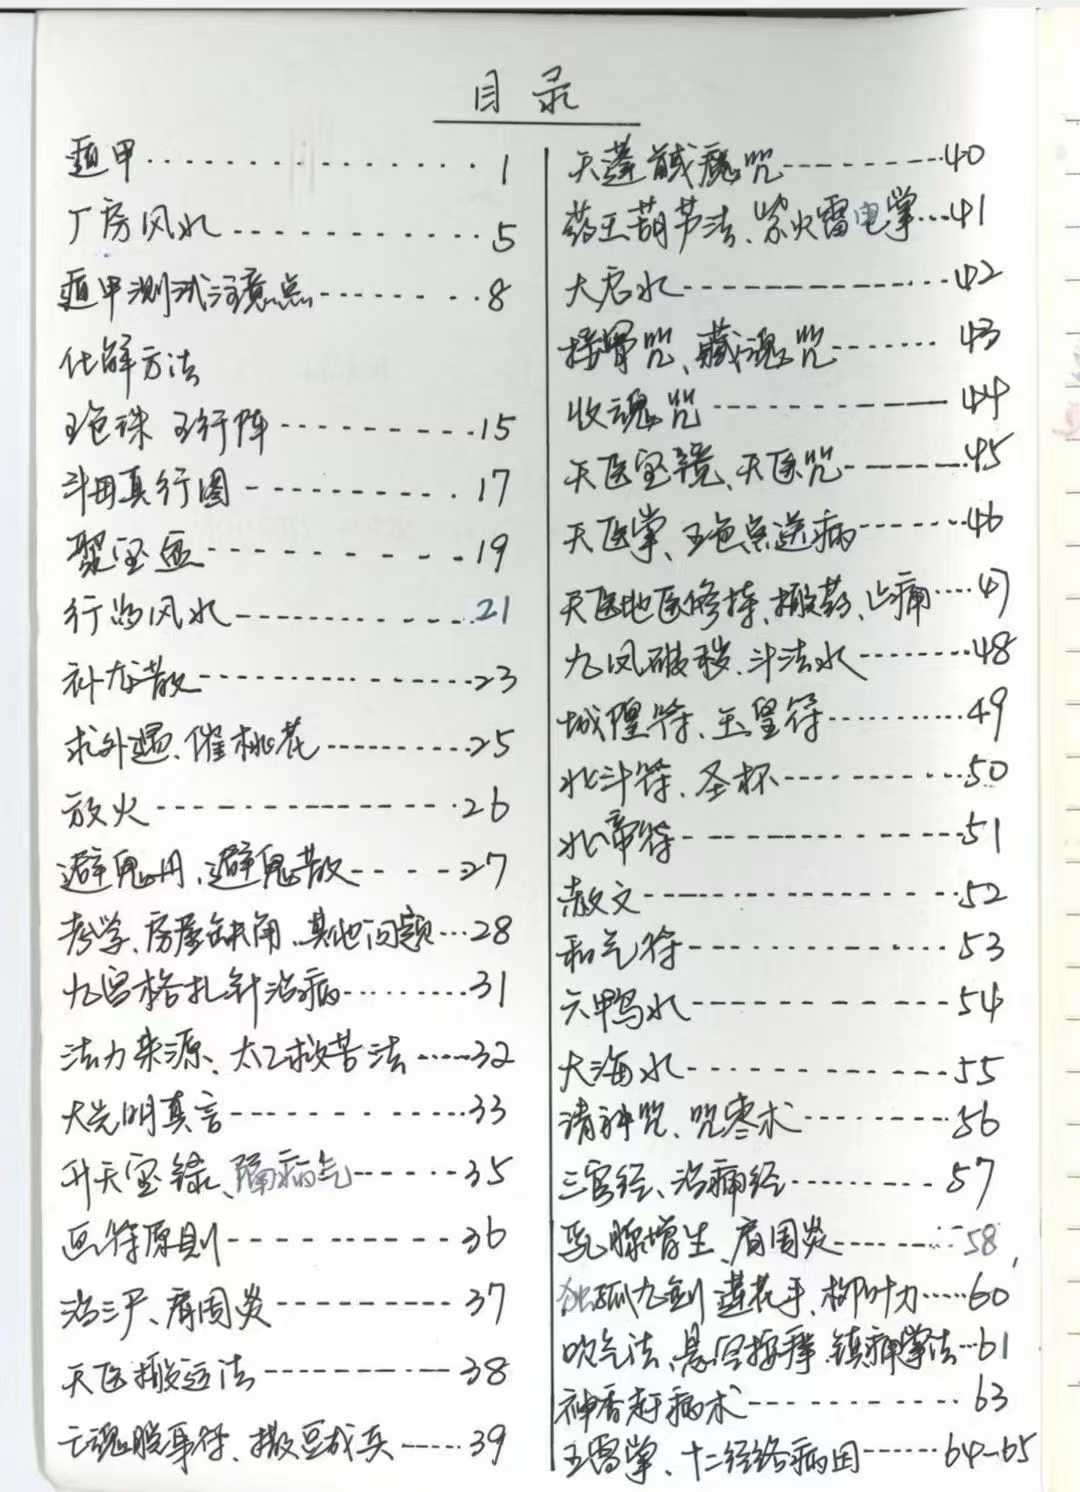 目录
遁甲 1
厂房风水 5
遁甲测试注意点 8
化解方法
五色珠 五行阵 15
斗母真行图 17
聚宝盆 19
行的风水 21
补龙散 23
求外遇、催桃花 25
放火 26
避鬼丹、避鬼散 27
考学、房屋缺角、其他问题 28
九宫格扎针治病 31
法力来源、太乙救苦法 32
大光明真言 33
升天宝箓、隔病气 35
画符原则 36
治三尸、肩周炎 37
天医搬运法 38
亡魂脱身符、撒豆成兵 39
天蓬馘魔咒 40
药王葫芦法、紫火雷电掌 41
大君水 42
接骨咒、藏魂咒 43
收魂咒 44
天医宝镜、天医咒 45
天医掌、五色点送病 46
天医地医修持、搬药、止痛 47
九凤破秽、斗法水 48
城隍符、玉皇符 49
北斗符、圣杯 50
北帝符 51
赦文 52
和气符 53
六鸭水 54
大海水 55
请神咒、咒枣术 56
三官经、治痛经 57
乳腺增生、肩周炎 58
独孤九剑 莲花手、柳叶刀 60
吹气法、悬空按摩、镇痛掌法 61
神香赶病术 63
五雷掌、十二经络病因 64-65